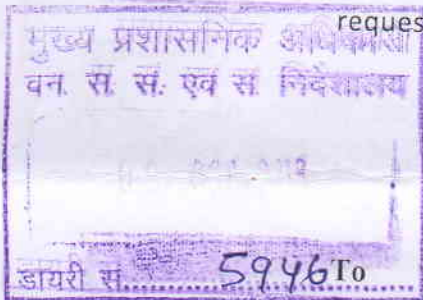 reques
मुख्य प्रशासनिक अधिकारी
वन. स. सं. एवं सं. निदेशालय
डायरी सं. 5946 To